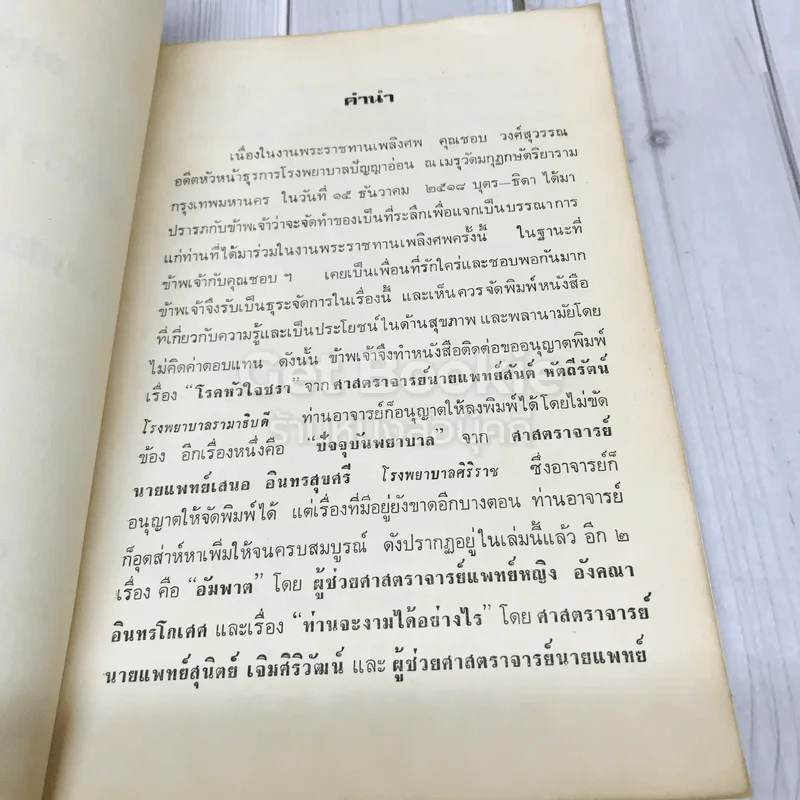 คำนำ
เนื่องในงานพระราชทานเพลิงศพ คุณชอบ วงศ์สุวรรณ
อดีตหัวหน้าธุรการโรงพยาบาลปัญญาอ่อน ณ เมรุวัดมกุฏกษัตริยาราม
กรุงเทพมหานคร ในวันที่ ๑๕ ธันวาคม ๒๕๑๘ บุตร—ธิดา ได้มา
ปรารภกับข้าพเจ้าว่าจะจัดทำของเป็นที่ระลึกเพื่อแจกเป็นบรรณาการ
แก่ท่านที่ได้มาร่วมในงานพระราชทานเพลิงศพครั้งนี้ ในฐานะที่
ข้าพเจ้ากับคุณชอบ ฯ เคยเป็นเพื่อนที่รักใคร่และชอบพอกันมาก
ข้าพเจ้าจึงรับเป็นธุระจัดการในเรื่องนี้ และเห็นควรจัดพิมพ์หนังสือ
ที่เกี่ยวกับความรู้และเป็นประโยชน์ในด้านสุขภาพ และพลานามัยโดย
ไม่คิดค่าตอบแทน ดังนั้น ข้าพเจ้าจึงทำหนังสือติดต่อขออนุญาตพิมพ์
เรื่อง “โรคหัวใจชรา” จาก ศาสตราจารย์นายแพทย์สันต์ หัตถีรัตน์
โรงพยาบาลรามาธิบดี ท่านอาจารย์ก็อนุญาตให้ลงพิมพ์ได้โดยไม่ขัด
ข้อง อีกเรื่องหนึ่งคือ “ปัจจุบันพยาบาล” จาก ศาสตราจารย์
นายแพทย์เสนอ อินทรสุขศรี โรงพยาบาลศิริราช ซึ่งอาจารย์ก็
อนุญาตให้จัดพิมพ์ได้ แต่เรื่องที่มีอยู่ยังขาดอีกบางตอน ท่านอาจารย์
ก็อุตส่าห์หาเพิ่มให้จนครบสมบูรณ์ ดังปรากฏอยู่ในเล่มนี้แล้ว อีก ๒
เรื่อง คือ “อัมพาต” โดย ผู้ช่วยศาสตราจารย์แพทย์หญิง อังคณา
อินทรโกเศศ และเรื่อง “ท่านจะงามได้อย่างไร” โดย ศาสตราจารย์
นายแพทย์สุนิตย์ เจิมศิริวัฒน์ และ ผู้ช่วยศาสตราจารย์นายแพทย์
ร้านหนังสือบุคคุ